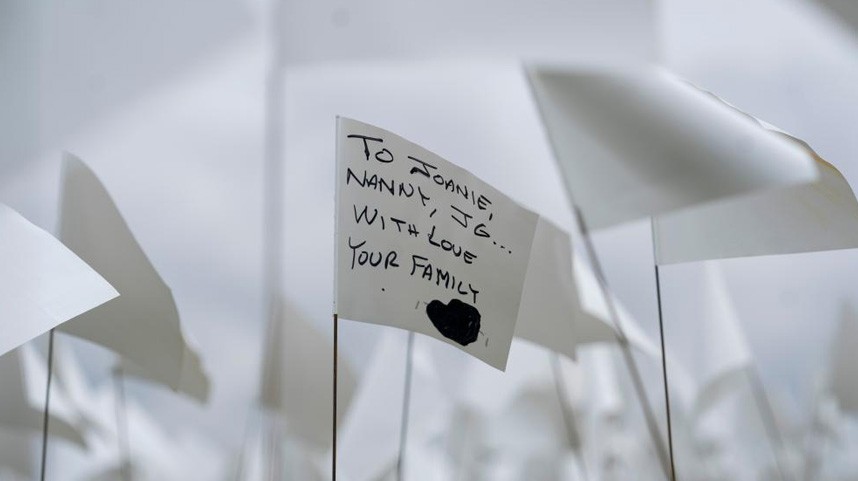 TO JOANIE,
NANNY, JG...
WITH LOVE
YOUR FAMILY